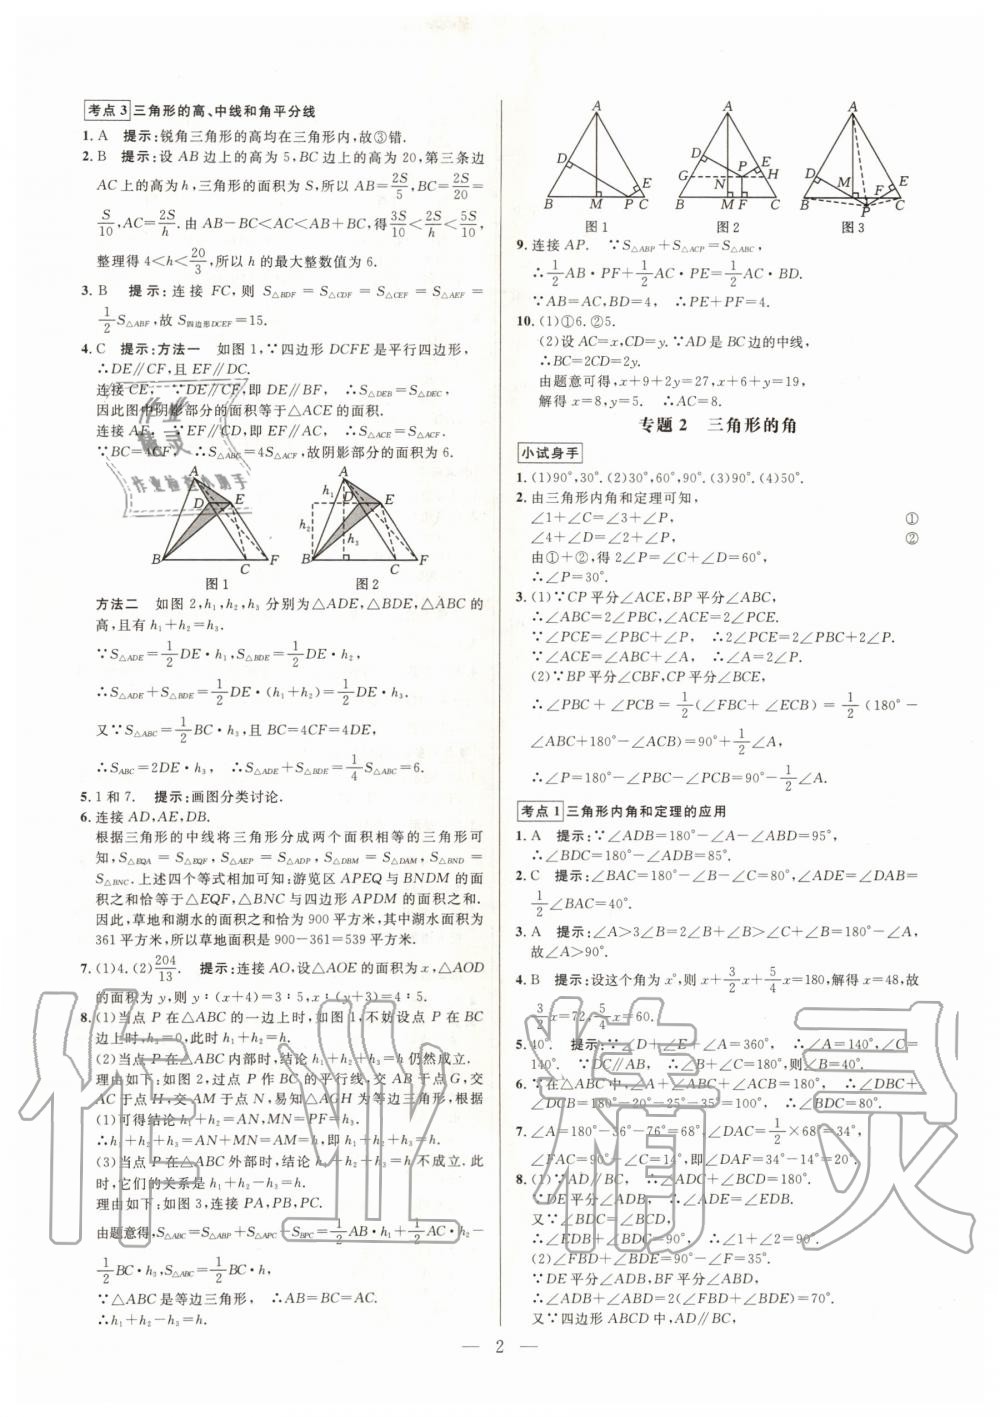 考点3 三角形的高、中线和角平分线
1. A 提示:锐角三角形的高均在三角形内,故③错.
2. B 提示:设 AB 边上的高为 5,BC 边上的高为 20,第三条边
AC 上的高为 h,三角形的面积为 S,所以 AB=2S/5,BC=2S/20=
S/10,AC=2S/h. 由 AB-BC<AC<AB+BC,得3S/10<2S/h<5S/10.
整理得 4<h<20/3,所以 h 的最大整数值为 6.
3. B 提示:连接 FC,则 S△BDF=S△CDF=S△CEF=S△AEF=
1/2S△ABF,故 S四边形DCEF=15.
4. C 提示:方法一 如图 1,∵四边形 DCFE 是平行四边形,
∴DE∥CF,且 EF∥DC.
连接 CE, ∵DE∥CF,即 DE∥BF, ∴S△DEB=S△DEC,
因此图中阴影部分的面积等于△ACE 的面积.
连接 AF, ∵EF∥CD,即 EF∥AC, ∴S△ACE=S△ACF.
∵BC=4CF, ∴S△ABC=4S△ACF,故阴影部分的面积为 6.
A
D
E
B
C
F
图1
A
h1
D
E
h2
h3
B
C
F
图2
方法二 如图 2,h1,h2,h3 分别为△ADE,△BDE,△ABC 的
高,且有 h1+h2=h3.
∵S△ADE=1/2DE·h1,S△BDE=1/2DE·h2,
∴S△ADE+S△BDE=1/2DE·(h1+h2)=1/2DE·h3.
又∵S△ABC=1/2BC·h3,且 BC=4CF=4DE,
∴SABC=2DE·h3, ∴S△ADE+S△BDE=1/4S△ABC=6.
5. 1 和 7. 提示:画图分类讨论.
6. 连接 AD,AE,DB.
根据三角形的中线将三角形分成两个面积相等的三角形可
知,S△EQA=S△EQF,S△AEP=S△ADP,S△DBM=S△DAM,S△BND=
S△BNC. 上述四个等式相加可知:游览区 APEQ 与 BNDM 的面
积之和恰等于△EQF,△BNC 与四边形 APDM 的面积之和.
因此,草地和湖水的面积之和恰为 900 平方米,其中湖水面积为
361 平方米,所以草地面积是 900-361=539 平方米.
7. (1)4. (2)204/13. 提示:连接 AO,设△AOE 的面积为 x,△AOD
的面积为 y,则 y∶(x+4)=3∶5,x∶(y+3)=4∶5.
8. (1)当点 P 在△ABC 的一边上时,如图 1,不妨设点 P 在 BC
边上时,h3=0,此时 h1+h2=h.
(2)当点 P 在△ABC 内部时,结论 h1+h2+h3=h 仍然成立.
理由如下:如图 2,过点 P 作 BC 的平行线,交 AB 于点 G,交
AC 于点 H,交 AM 于点 N,易知△AGH 为等边三角形,根据
(1)可得结论 h1+h2=AN,MN=PF=h3.
∴h1+h2+h3=AN+MN=AM=h,即 h1+h2+h3=h.
(3)当点 P 在△ABC 外部时,结论 h1+h2+h3=h 不成立. 此
时,它们的关系是 h1+h2-h3=h.
理由如下:如图 3,连接 PA,PB,PC.
由题意得,S△ABC=S△ABP+S△APC-SBPC=1/2AB·h1+1/2AC·h2-
1/2BC·h3,S△ABC=1/2BC·h,
∵△ABC 是等边三角形, ∴AB=BC=AC.
∴h1+h2-h3=h.
A
D
E
B
M
P
C
图1
A
D
P
E
G
N
H
B
M
F
C
图2
A
D
M
F
E
B
P
C
图3
9. 连接 AP. ∵S△ABP+S△ACP=S△ABC,
∴1/2AB·PF+1/2AC·PE=1/2AC·BD.
∵AB=AC,BD=4, ∴PE+PF=4.
10. (1)①6. ②5.
(2)设 AC=x,CD=y. ∵AD 是 BC 边的中线,
∴BC=2CD=2y.
由题意可得,x+9+2y=27,x+6+y=19.
解得 x=8,y=5. ∴AC=8.
专题2 三角形的角
小试身手
1. (1)90°,30°. (2)30°,60°,90°. (3)90°. (4)50°.
2. 由三角形内角和定理可知,
∠1+∠C=∠3+∠P, ①
∠4+∠D=∠2+∠P. ②
由①+②,得 2∠P=∠C+∠D=60°,
∴∠P=30°.
3. (1)∵CP 平分∠ACE,BP 平分∠ABC,
∴∠ABC=2∠PBC,∠ACE=2∠PCE.
∵∠PCE=∠PBC+∠P, ∴2∠PCE=2∠PBC+2∠P.
∵∠ACE=∠ABC+∠A, ∴∠A=2∠P.
(2)∵BP 平分∠CBF,CP 平分∠BCE,
∴∠PBC+∠PCB=1/2(∠FBC+∠ECB)=1/2(180°-
∠ABC+180°-∠ACB)=90°+1/2∠A,
∴∠P=180°-∠PBC-∠PCB=90°-1/2∠A.
考点1 三角形内角和定理的应用
1. A 提示:∵∠ADB=180°-∠A-∠ABD=95°,
∴∠BDC=180°-∠ADB=85°.
2. C 提示:∠BAC=180°-∠B-∠C=80°,∠ADE=∠DAB=
1/2∠BAC=40°.
3. A 提示:∠A>3∠B=2∠B+∠B>2∠C+∠B>∠B+∠C,
故∠A>90°.
4. B 提示:设这个角为 x°,则 x+3/2x+5/4x=180,解得 x=48,故
3/2x=72,5/4x=60.
5. 40°. 提示:∵∠D+∠E+∠A=360°, ∴∠A=140°,∠C=
140°. ∵DC∥AB, ∴∠B+∠C=180°,则∠B=40°.
6. ∵在△ABC 中,∠A+∠ABC+∠ACB=180°, ∴∠DBC+
∠DCB=180°-20°-25°-35°=100°, ∴∠BDC=80°.
7. ∠A=180°-36°-76°=68°,∠DAC=1/2×68°=34°,
∠FAC=90°-∠C=14°,即∠DAF=34°-14°=20°.
8. (1)∵AD∥BC, ∴∠ADC+∠BCD=180°.
∵DE 平分∠ADB, ∴∠ADE=∠EDB.
又∵∠BDC=∠BCD,
∴∠EDB+∠BDC=90°, ∴∠1+∠2=90°.
(2)∠FBD+∠BDE=90°-∠F=35°.
∵DE 平分∠ADB,BF 平分∠ABD,
∴∠ADB+∠ABD=2(∠FBD+∠BDE)=70°.
又∵四边形 ABCD 中,AD∥BC,
— 2 —
作业精灵
作业检查小助手
作业精灵